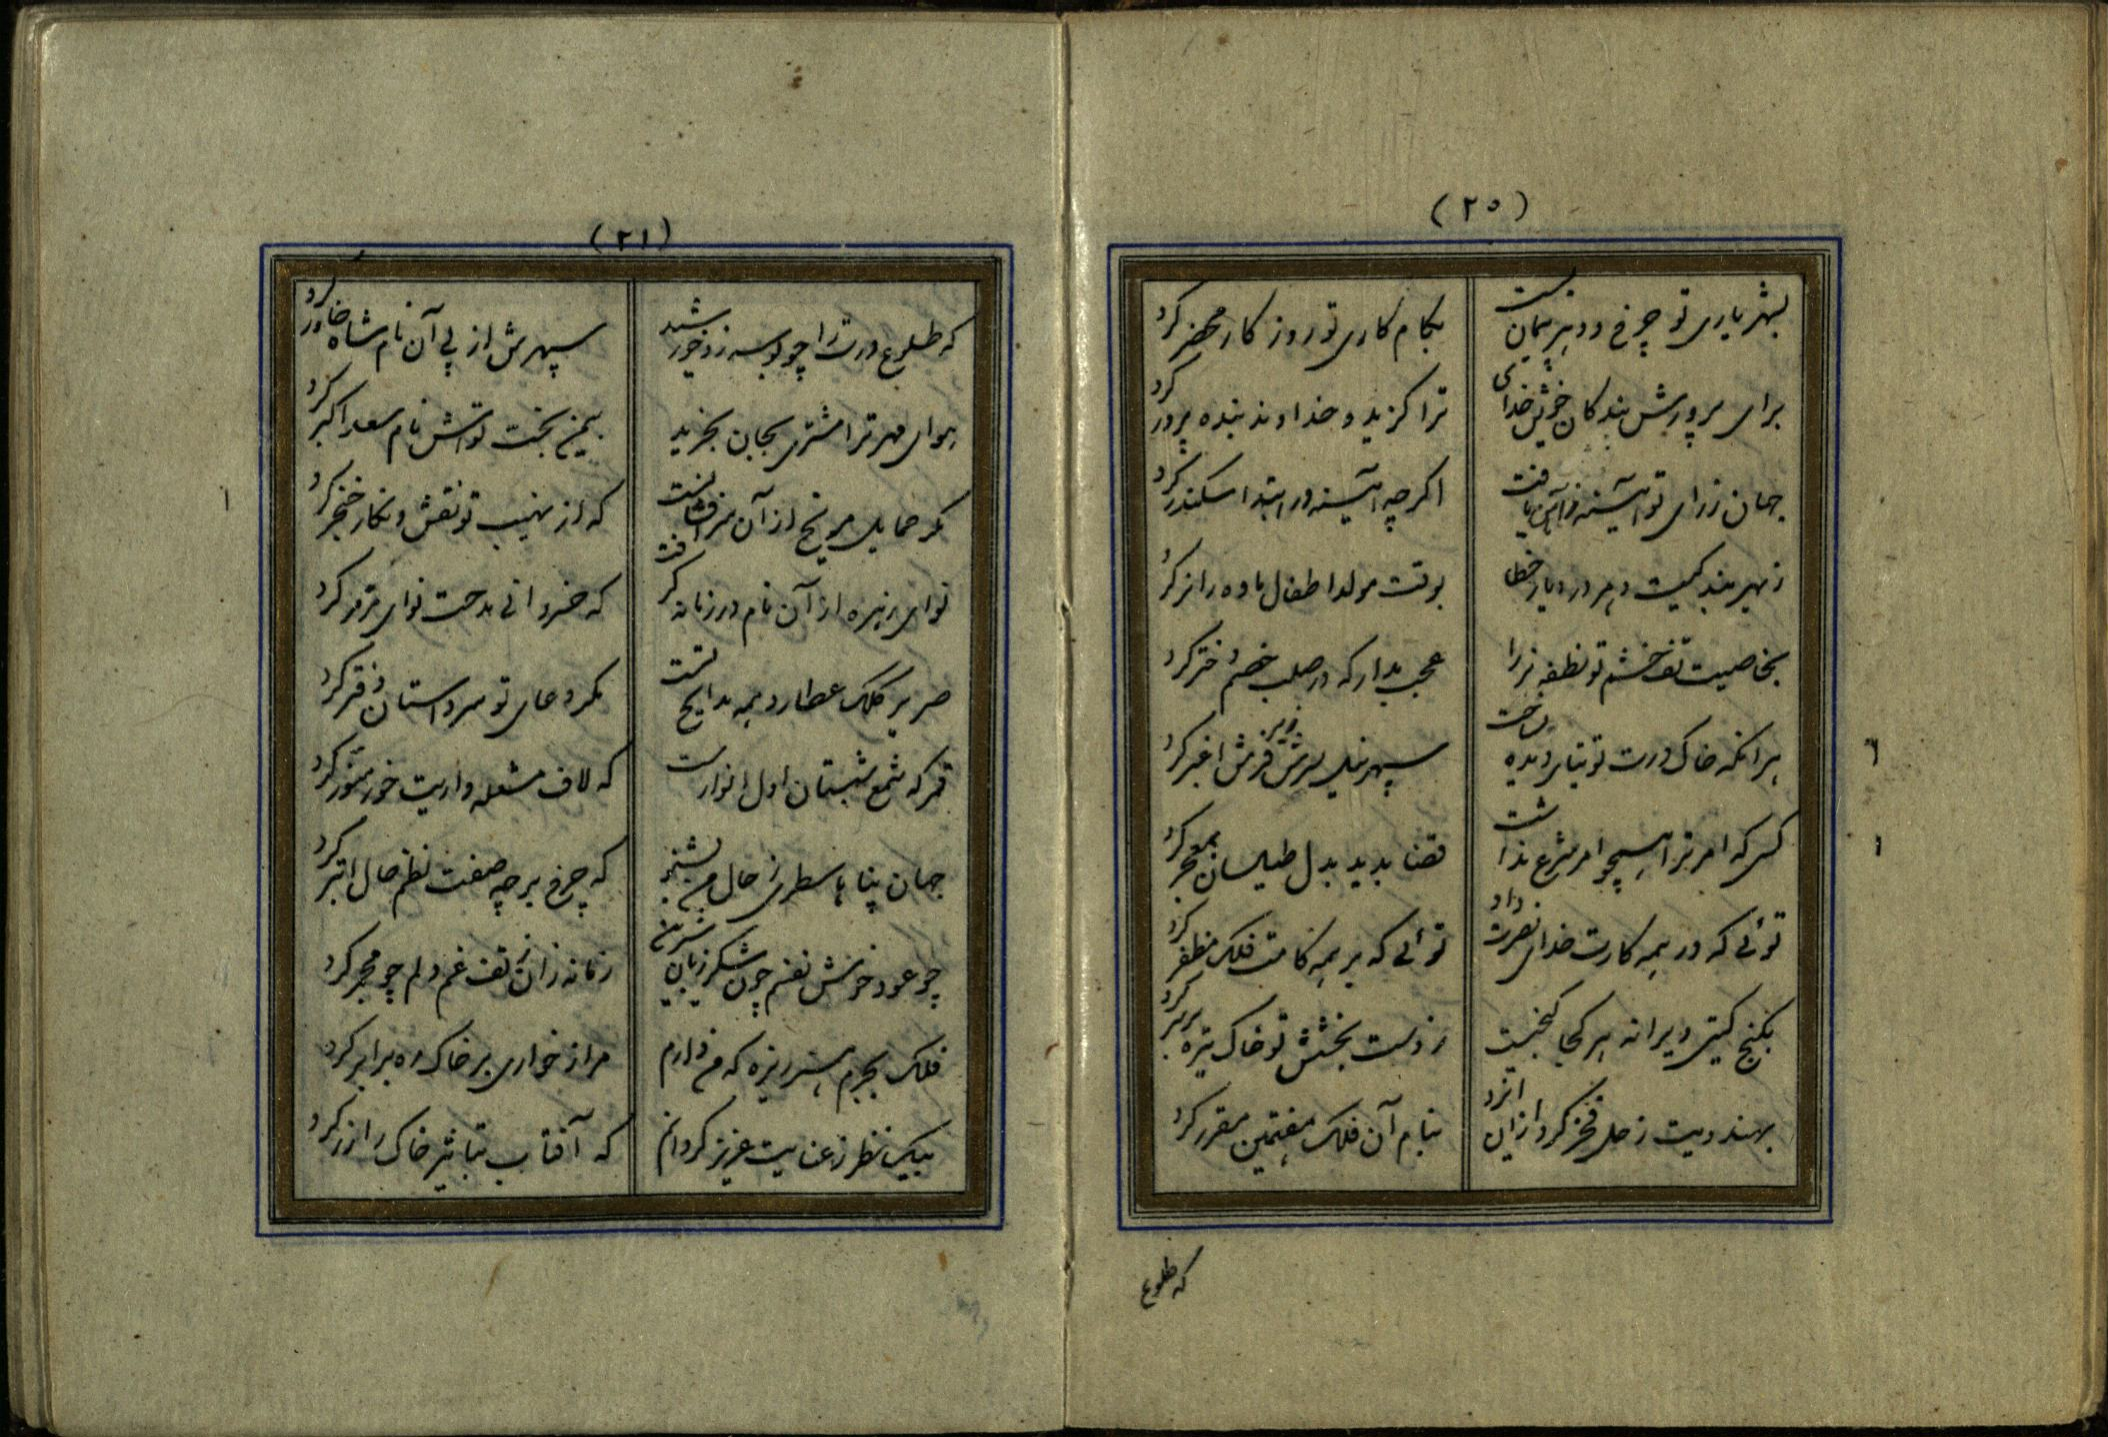 (۲۰)
بشهریاری تو چرخ و دهر پیمان بست
بکام کاری تو روزگار محضر کرد
برای پرورش بندکان خویش خدای
ترا کزید و خداوند بنده پرور کرد
جهان ز رای تو آیینه یافت
اکرچه آیینه در ابتدا سکندر کرد
بوقت مولد اطفال ماده را نر کرد
بخاصیت تف خشم تو نطفهٔ نر را
عجب مدار که در صلب خصم دختر کرد
هر انکه خاک درت توتیای دیده ساخت
سپهر نیلی فرش اغبر کرد
کسی که امر ترا همچو امر شرع نداشت
قضا بدید بدل طیلسان بمعجر کرد
توئی که در همه کارت خدای نصرت داد
توئی که بر همه کامت فلک مظفر کرد
بکنج کیتی ویرانه هر کجا کنجیست
ز دست بخشش تو خاک تیره بر سر کرد
بهندویت زحل فخر کرد از این ایزد
بنام آن فلک هفتمین مقرر کرد
که طلوع
(۲۱)
که طلوع درت را چو بوسه زد خورشید
سپهرش از پی آن نام شاه خاور کرد
هوای مهر ترا مشتری بجان بخرید
بیمن بخت تواش نام سعد اکبر کرد
مکر حمایل مریخ از آن سرافشانست
که از نهیب تو نقش و نکار خنجر کرد
نوای زهره از آن نام در زمانه کرفت
که خسروانی مدحت نوای مزمر کرد
صریر کلک عطارد همه مدایح تست
مکر دعای تو سرداستان دفتر کرد
قمر که شمع شبستان اول انوارست
که لاف مشعله داریت خور منور کرد
جهان پناها سطری ز حال من بشنو
که چرخ بر چه صفت نظم حال ابتر کرد
چو عود خوش نفسم چون شکر زبان شیرین
زمانه زان ز تف غم دلم چو مجمر کرد
فلک بجرم هنر ریزه که من دارم
مرا ز خواری بر خاک ره برابر کرد
بیک نظر ز عنایت عزیز کردانم
که آفتاب بتاثیر خاک را زر کرد